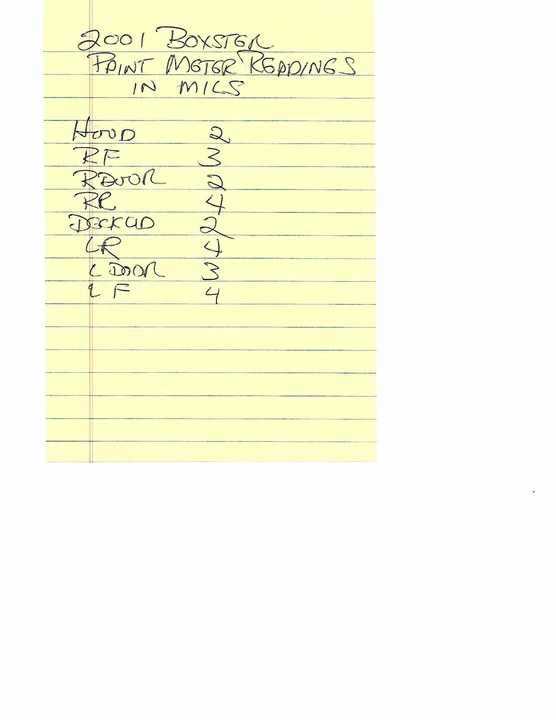 2001 BOXSTER
PAINT METER READINGS
IN MILS
HOOD 2
RF 3
R DOOR 2
RR 4
DECKLID 2
LR 4
L DOOR 3
LF 4